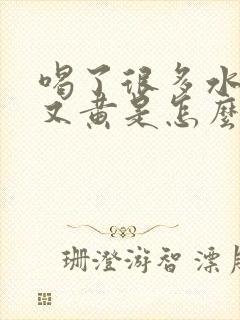 喝了很多水
又黄是怎麼
珊澄游智漂